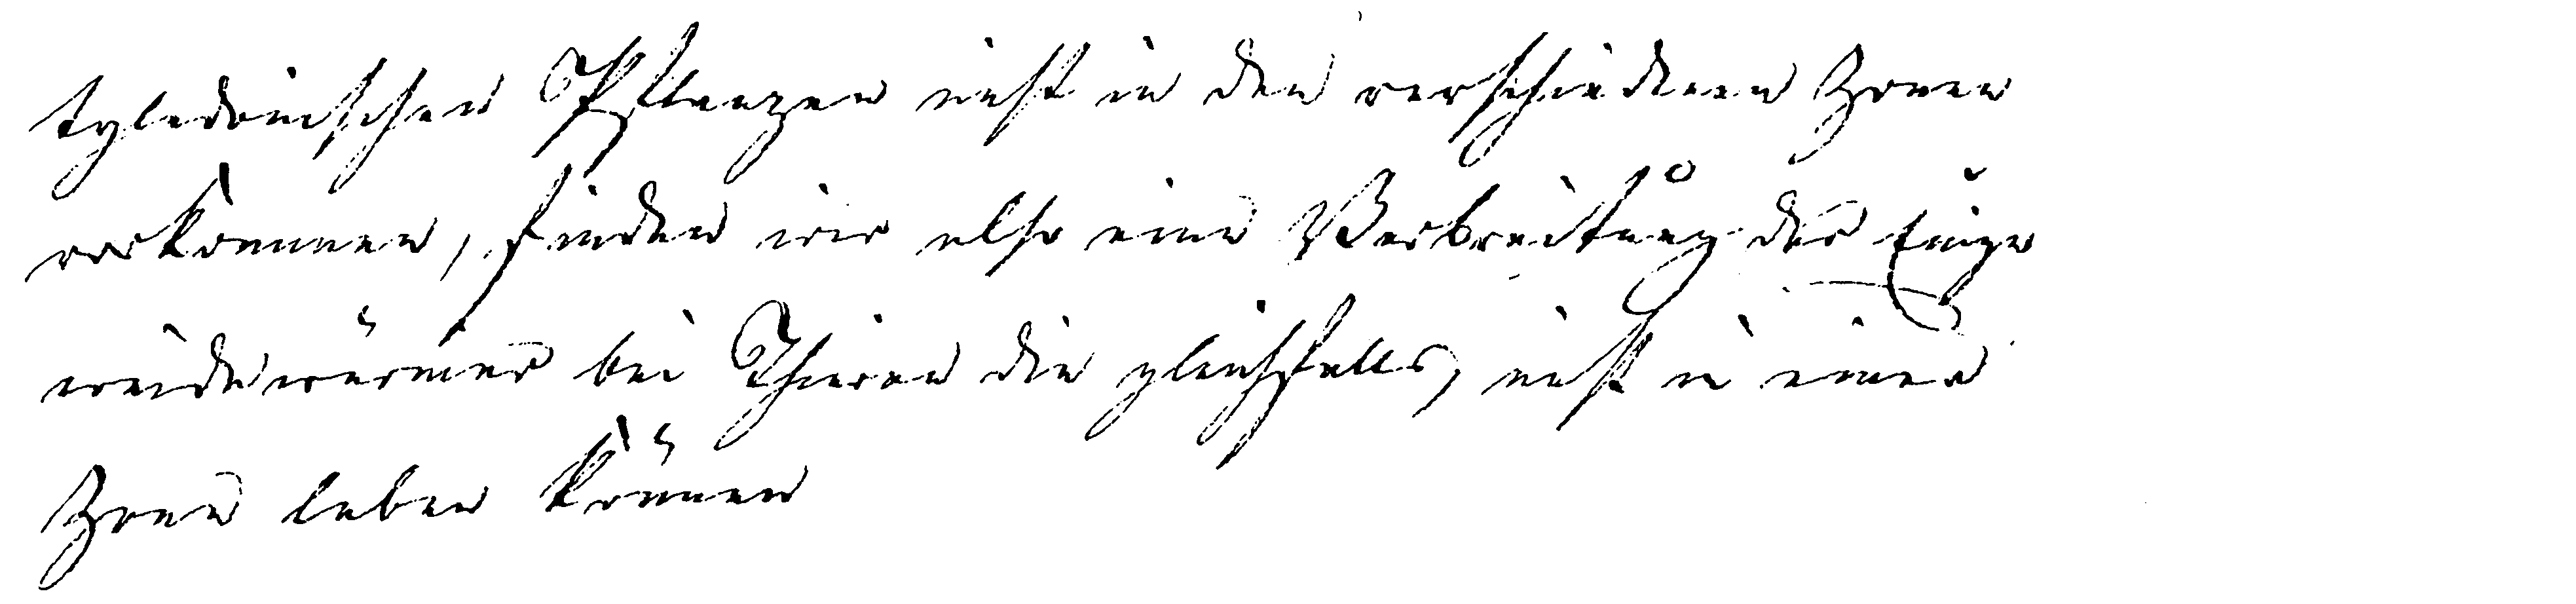 tyledonischen Pflanzen nicht in den verschiedenen Zonen
vorkommen, finden wir also eine Verbreitung der Einge
weidewürmer bei Thieren die gleichfalls, nicht in einer
Zone leben können